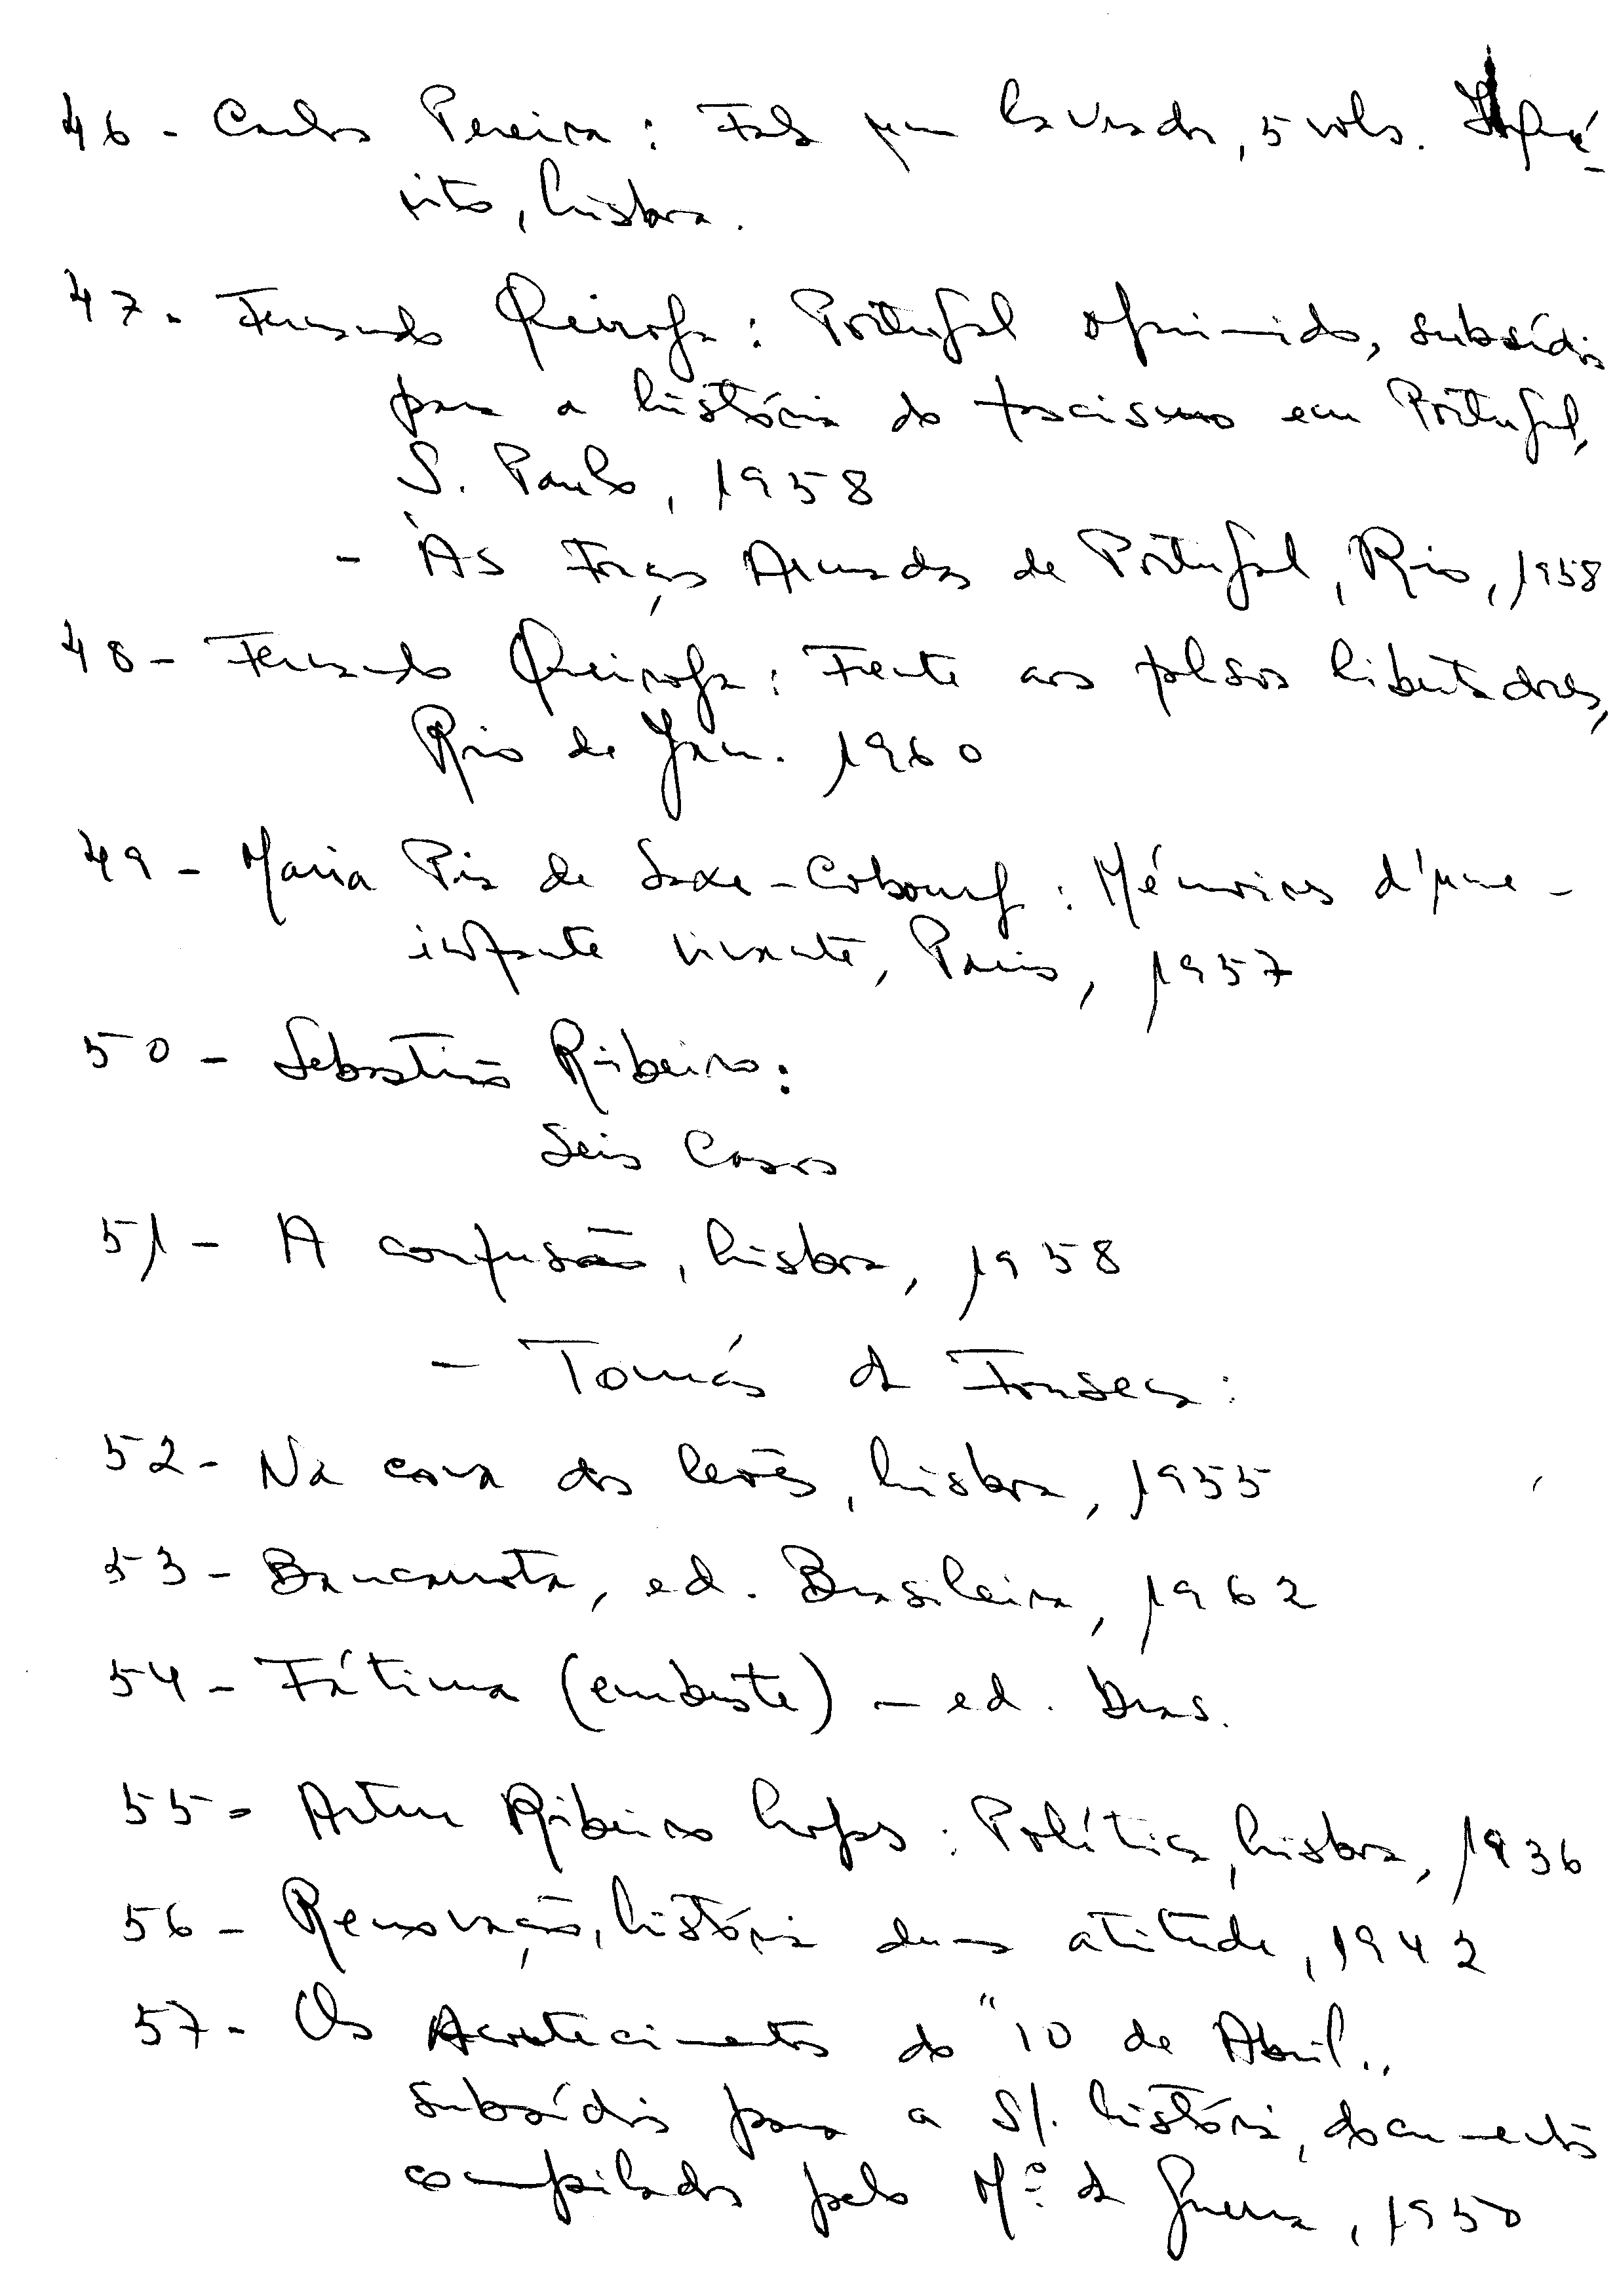 46 - Carlos Pereira: Fala um lavrador, 5 vols. Inqué-
rito, Lisboa.
47 - Fernando Queiroga: Portugal oprimido, subsídios
para a história do fascismo em Portugal,
S. Paulo, 1958
- Às Forças Armadas de Portugal, Rio, 1958
48 - Fernando Queiroga: Frente aos falsos libertadores,
Rio de Jan. 1960
49 - Maria Pia de Saxe-Cobourg: Mémoires d'une
infante vivante, Paris, 1957
50 - Sebastião Ribeiro:
Seis Casos
51 - A confusão, Lisboa, 1958
- Tomás da Fonseca:
52 - Na cova dos leões, Lisboa, 1955
53 - Bancarrota, ed. Brasileira, 1962
54 - Fátima (embuste) - ed. Bras.
55 - Artur Ribeiro Lopes: Política, Lisboa, 1936
56 - Renovação, história duma atitude, 1942
57 - Os Acontecimentos do "10 de Abril"
subsídios para a s/. história, documentos
compilados pelo Mº. da Guerra, 1950